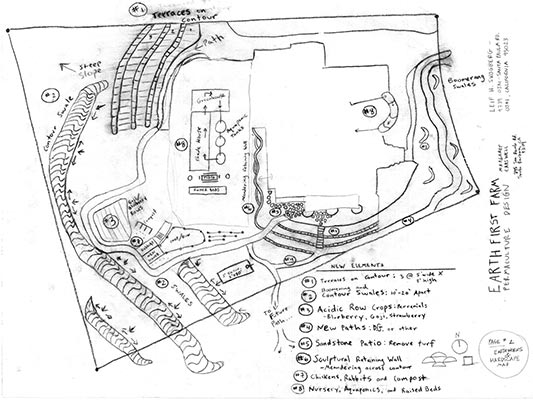 #1 Terraces on
contour
Path
Steep
Slope
#2
Contour Swale
Greenhouse
Shade House
Aquaponic
Tanks
Raised Beds
#8
#4
Boomerang
Swales
Meandering Retaining Wall
#3
#7
#5
#4
#2 Swales
To
Future
Path...
NEW ELEMENTS
#1 Terraces on Contour: 3 @ 5' wide x
1' high
#2 Boomerang and
Contour Swales: 10'-20' Apart
#3 Acidic Row Crops: Perennials
-Blueberry, Goji, Strawberry
#4 New Paths: DG. or other
#5 Sandstone Patio: Remove turf
#6 Sculptural Retaining Wall
-Meandering across contour
#7 Chickens, Rabbits and Compost
#8 Nursery, Aquaponics, and Raised Beds
N
PAGE # 2
EARTHWORKS
&
HARDSCAPE
MAP
EARTH FIRST FARM
PERMACULTURE DESIGN
MARGARET
CARSWELL
LEIF H. SKOGBERG -
OJAI, CALIFORNIA 93023